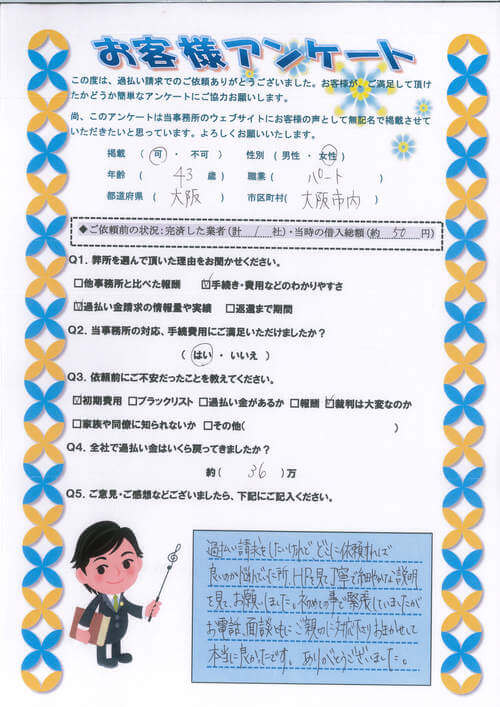 お客様アンケート
この度は、過払い請求でのご依頼ありがとうございました。お客様が、ご満足して頂け
たかどうか簡単なアンケートにご協力お願いします。
尚、このアンケートは当事務所のウェブサイトにお客様の声として無記名で掲載させて
いただきたいと思っています。よろしくお願いいたします。
掲載 ( 可 ・ 不可 ) 性別 ( 男性 ・ 女性 )
年齢 ( 43 歳 ) 職業 ( パート )
都道府県 ( 大阪 ) 市区町村( 大阪市内 )
◆ご依頼前の状況:完済した業者(計 1 社)・当時の借入総額(約 50 円)
Q1. 弊所を選んで頂いた理由をお聞かせください。
□他事務所と比べた報酬 ☑手続き・費用などのわかりやすさ
☑過払い金請求の情報量や実績 □返還まで期間
Q2. 当事務所の対応、手続費用にご満足いただけましたか?
( はい ・ いいえ )
Q3. 依頼前にご不安だったことを教えてください。
☑初期費用 □ブラックリスト □過払い金があるか □報酬 ☑裁判は大変なのか
□家族や同僚に知られないか □その他( )
Q4. 全社で過払い金はいくら戻ってきましたか?
約( 36 )万
Q5. ご意見・ご感想などございましたら、下記にご記入ください。
過払い請求をしたいけれど どこに依頼すれば
良いのか悩んでいた所、HPを見て丁寧で細やかな説明
を見、お願いしました。初めての事で緊張していましたが
お電話、面談共に ご親切に対応下さりおまかせして
本当に良かったです。ありがとうございました。